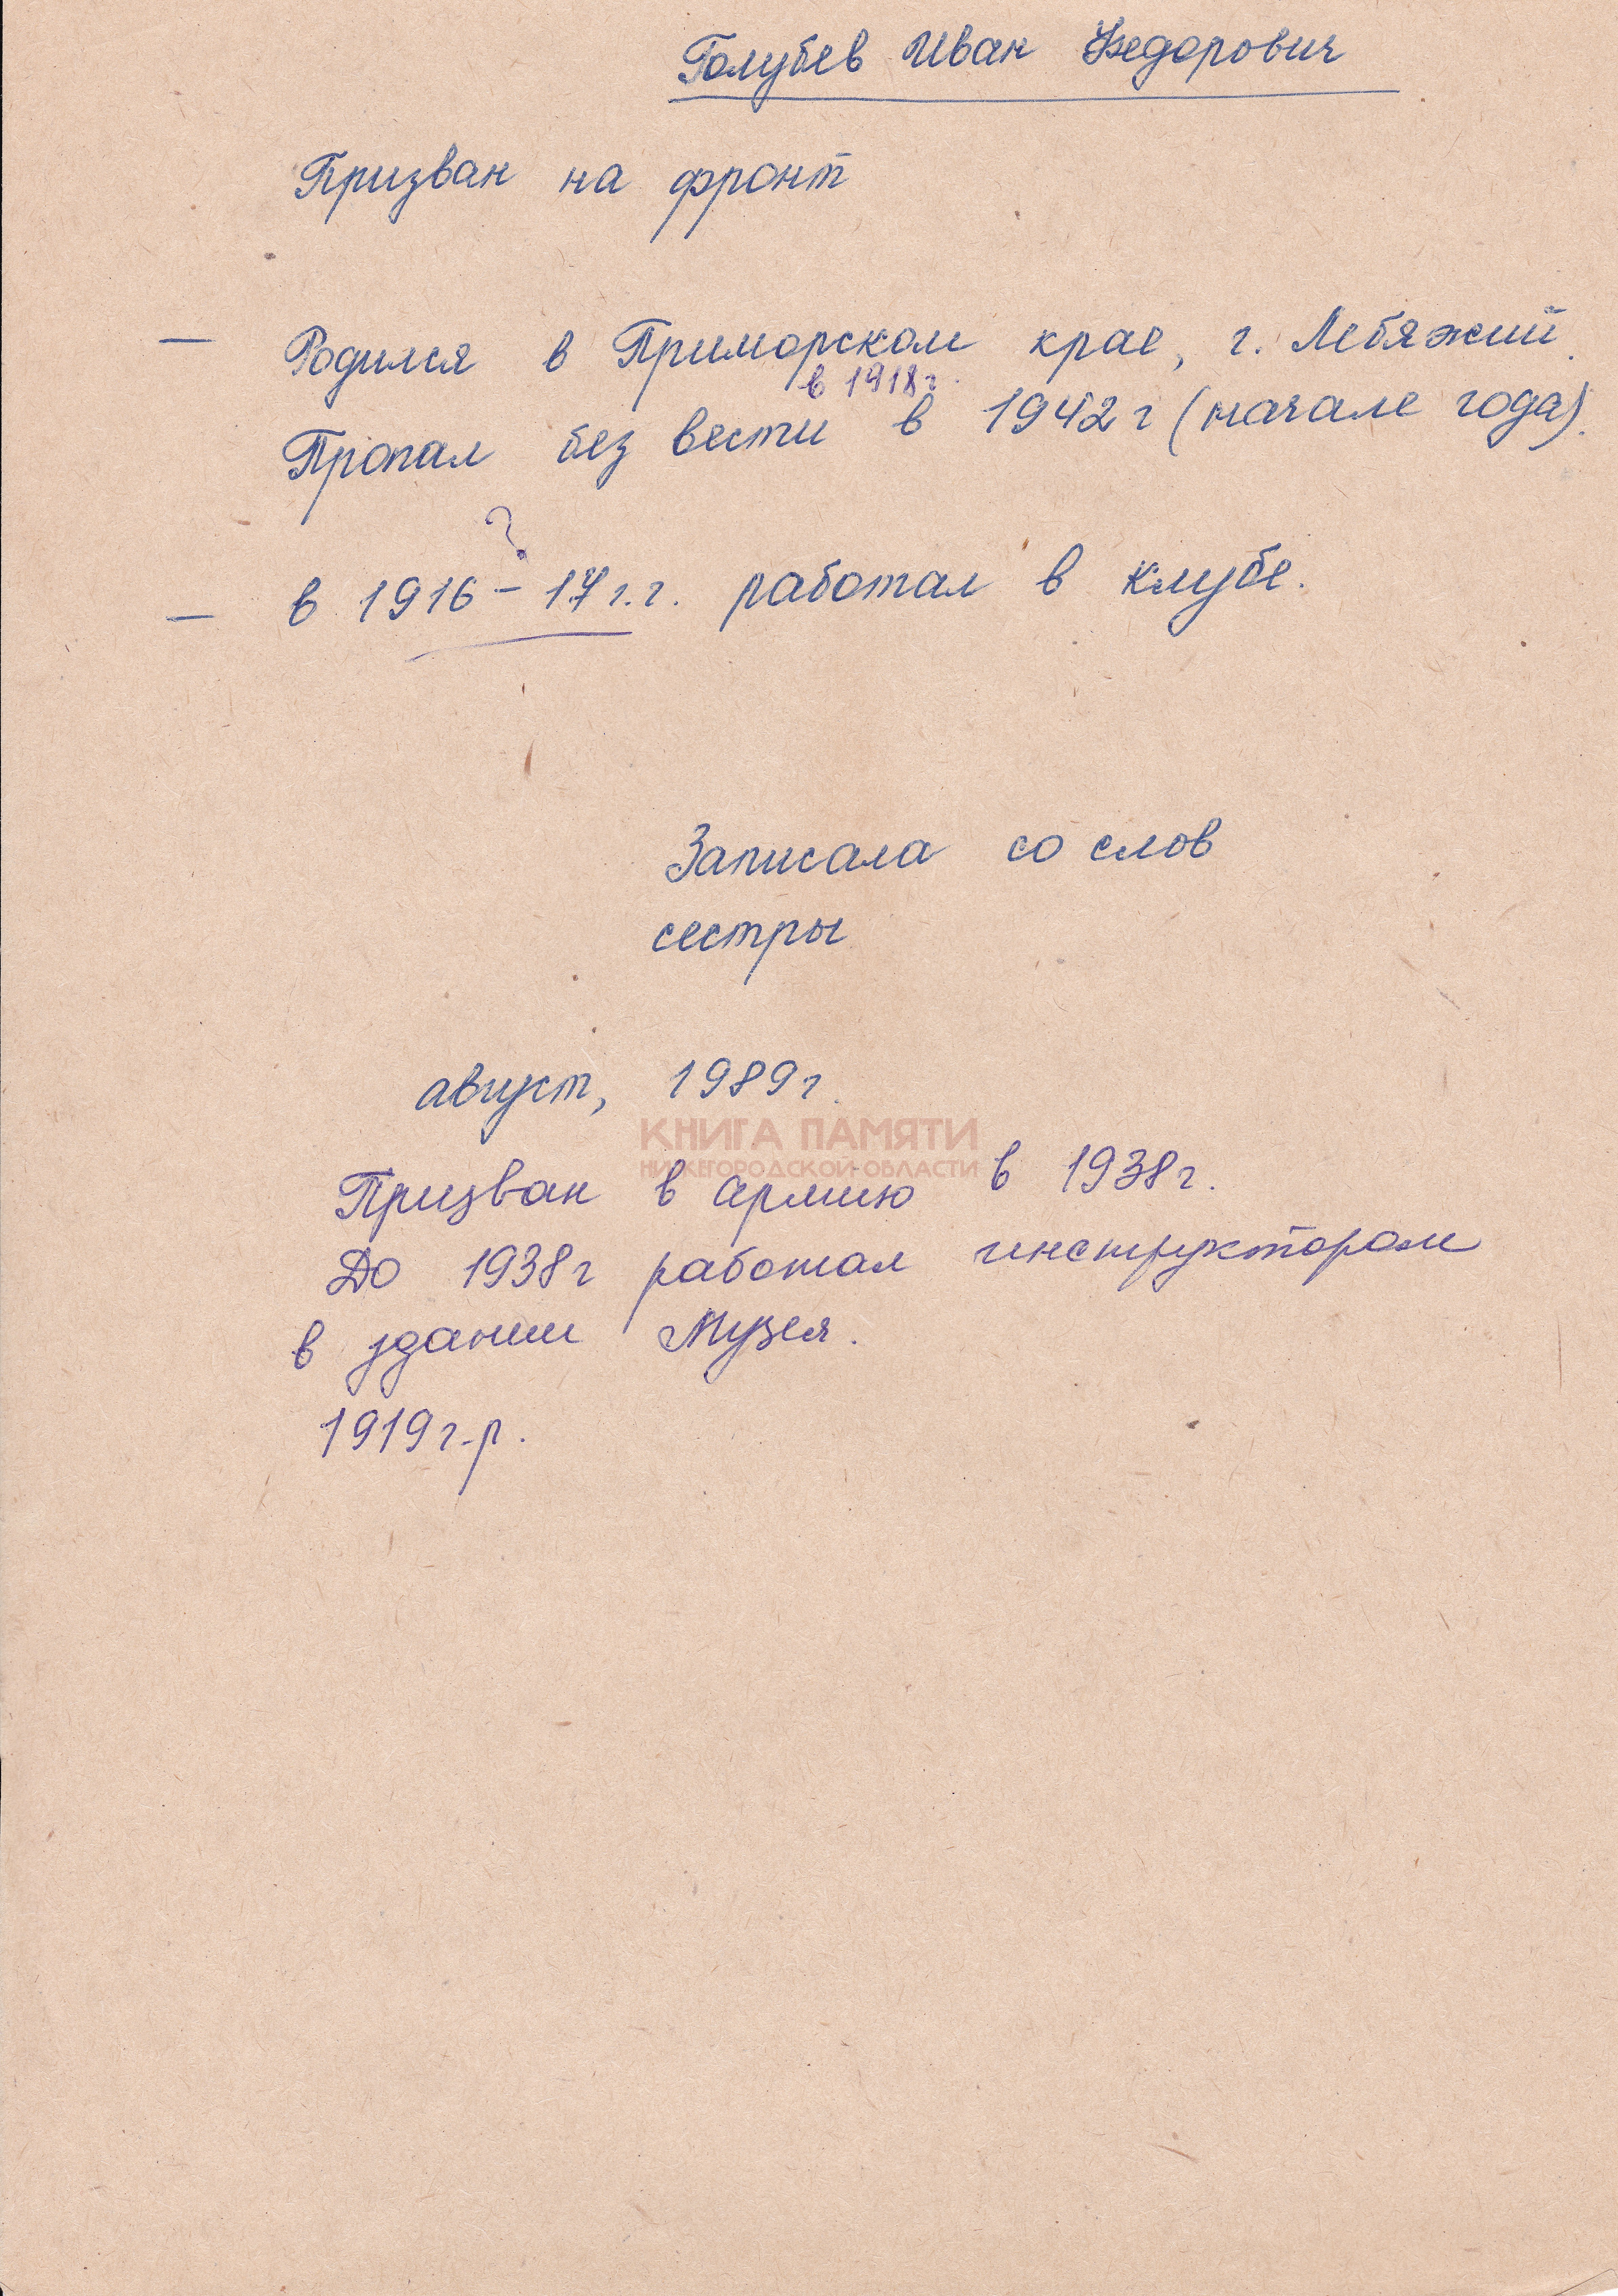 Голубев Иван Федорович
Призван на фронт
— Родился в Приморском крае, г. Лебяжий.
в 1918г.
Пропал без вести в 1942г (начале года).
?
— в 1916 – 17г.г. работал в клубе.
Записала со слов
сестры
август, 1989г.
КНИГА ПАМЯТИ
НИЖЕГОРОДСКОЙ ОБЛАСТИ
Призван в армию в 1938г.
До 1938г работал инструктором
в здании Музея.
1919г.р.